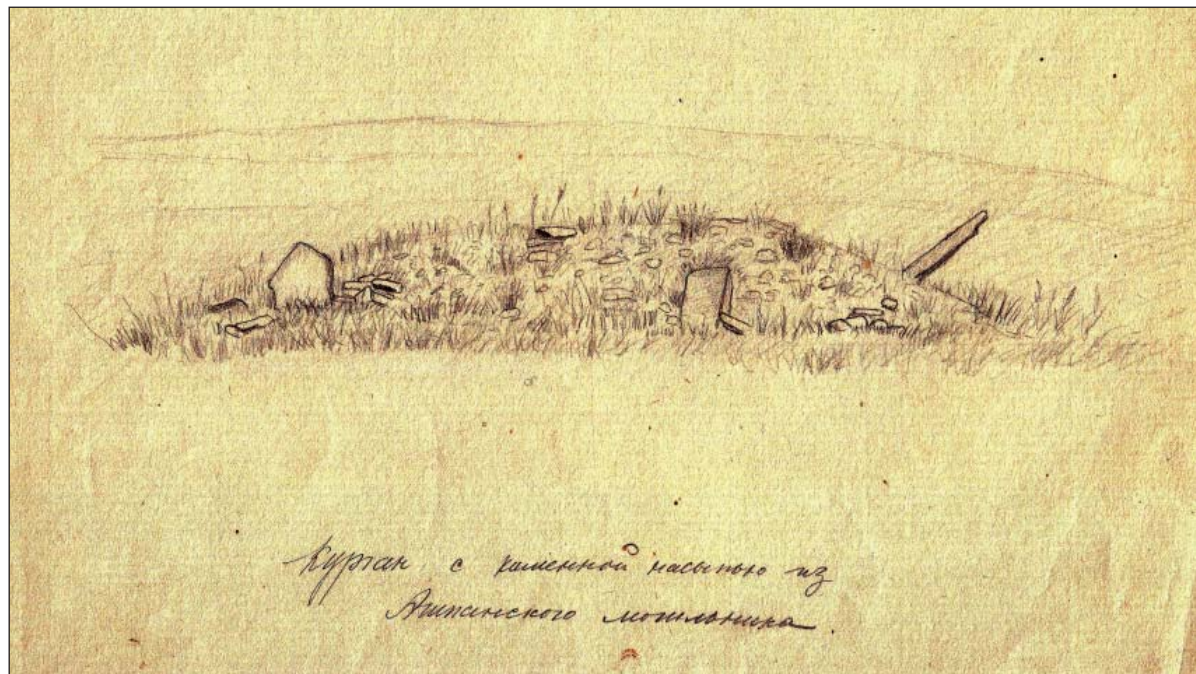 Курган с каменной насыпью из
Ашпанского могильника.